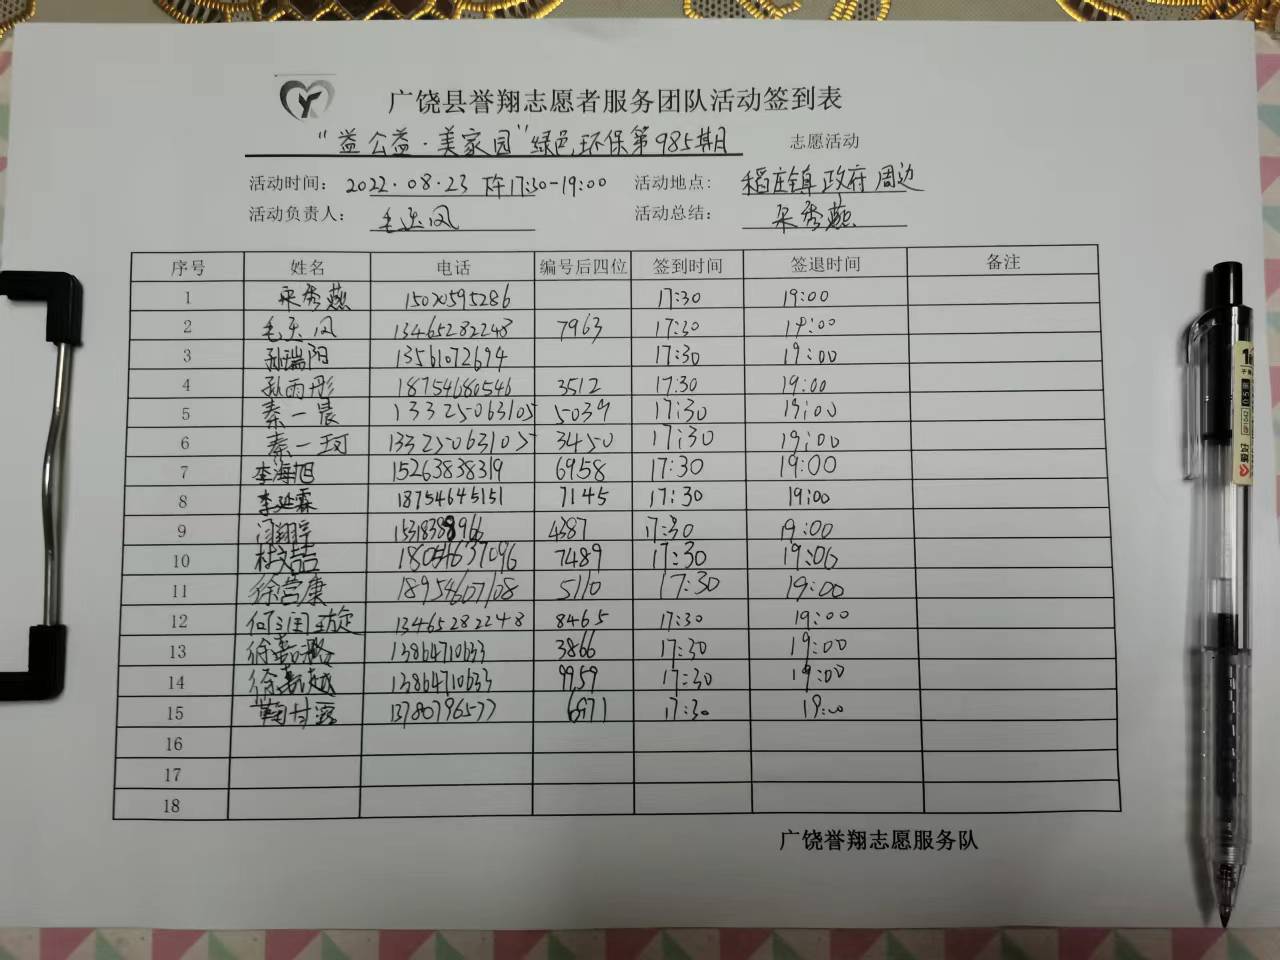 广饶县誉翔志愿者服务团队活动签到表
“益公益·美家园”绿色环保第985期 志愿活动
活动时间: 2022.08.23 下午17:30-19:00 活动地点: 稻庄镇政府周边
活动负责人: 毛玉凤 活动总结: 宋秀燕
序号 姓名 电话 编号后四位 签到时间 签退时间 备注
1 宋秀燕 17:30 19:00
2 毛玉凤 13465282248 7963 17:30 19:00
3 孙瑞阳 13561072694 17:30 19:00
4 孙雨彤 18754680546 3512 17:30 19:00
5 秦一晨 13325063105 5039 17:30 19:00
6 秦一珂 13325063105 3450 17:30 19:00
7 李海旭 15263838319 6958 17:30 19:00
8 李延霖 18754645151 7145 17:30 19:00
9 4387 17:30 19:00
10 7489 17:30 19:00
11 徐营康 18954607108 5110 17:30 19:00
12 13465282248 8465 17:30 19:00
13 13864710633 3866 17:30 19:00
14 徐嘉越 13864710633 9959 17:30 19:00
15 鞠甘露 13780796577 6971 17:30 19:00
16
17
18
广饶誉翔志愿服务队